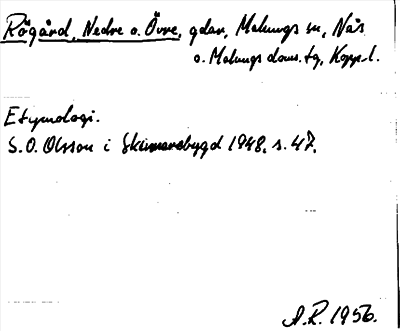 Rågård, Nedre o. Övre, gdar, Malungs sn, Nås
o. Malungs doms.tg, Kopp. l.
Etymologi.
S. O. Olsson i Skinnarebygd 1948. s. 47.
A.R. 1956.